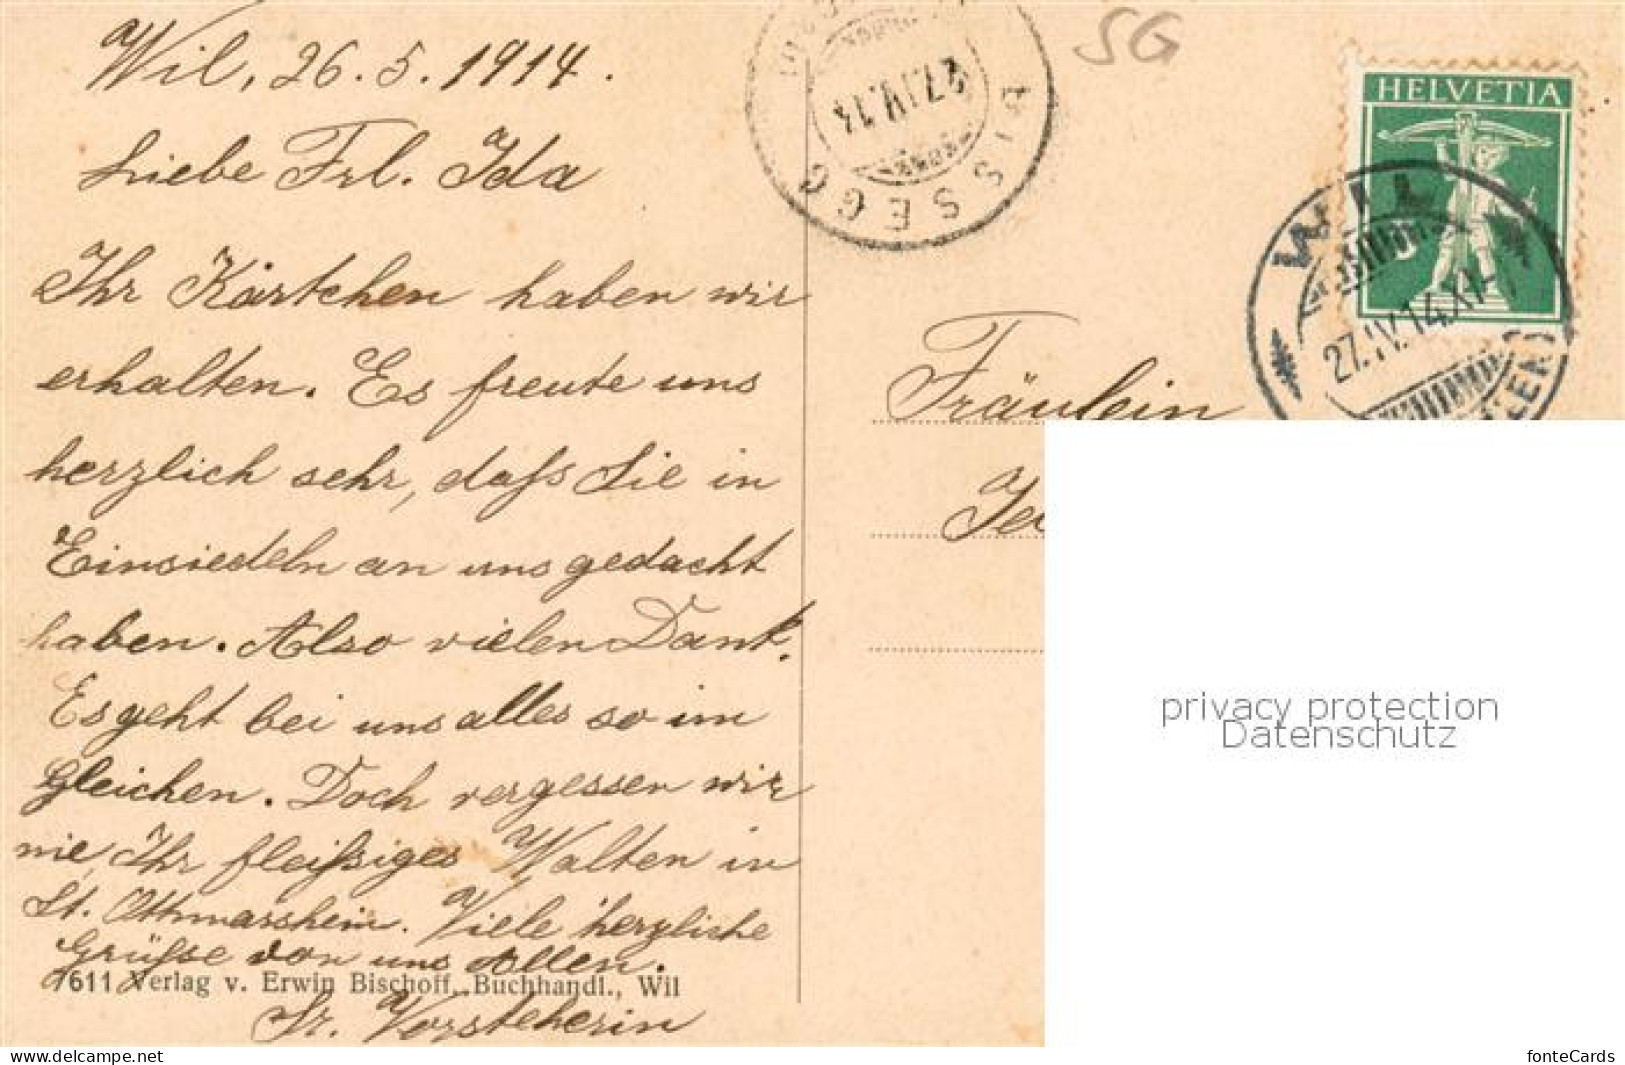 Wil, 26.5.1914.
Liebe Frl. Ida
Ihr Kärtchen haben wir
erhalten. Es freute uns
herzlich sehr, dass Sie in
Einsiedeln an uns gedacht
haben. Also vielen Dank.
Es geht bei uns alles so im
Gleichen. Doch vergessen wir
nie, Ihr fleissiges Walten in
St. Othmarsheim. Viele herzliche
Grüsse von uns Allen.
7611 Verlag v. Erwin Bischoff, Buchhandl., Wil
Sr. Vorsteherin
BISSEGG
27.IV.14
SG
HELVETIA
WIL
27.IV.14.XI
Fräulein
privacy protection
Datenschutz
www.delcampe.net
fonteCards